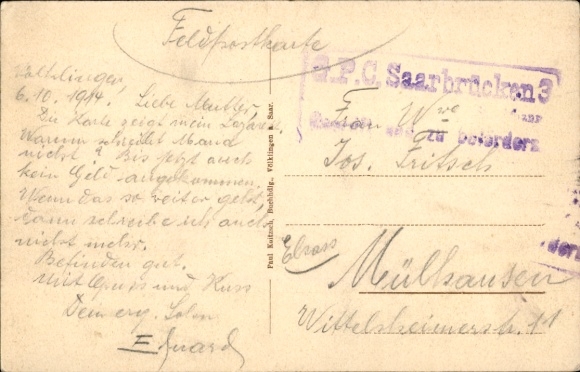 Feldpostkarte
Völklingen,
6.10.1914. Liebe Mutter,
Die Karte zeigt mein Lazarett.
Warum schreibt Maria
nicht? Bis jetzt auch
kein Geld angekommen.
Wenn das so weiter geht,
dann schreibe ich auch
nicht mehr.
Befinden gut.
Mit Gruss und Kuss
Sohn
Eduard
Paul Kaitzsch, Buchhdlg., Völklingen a. Saar.
G.P.C. Saarbrücken 3
zu befördern
Frau Wve
Jos. Fritsch
Elsass
Mülhausen
Wittelsheimerstr. 11